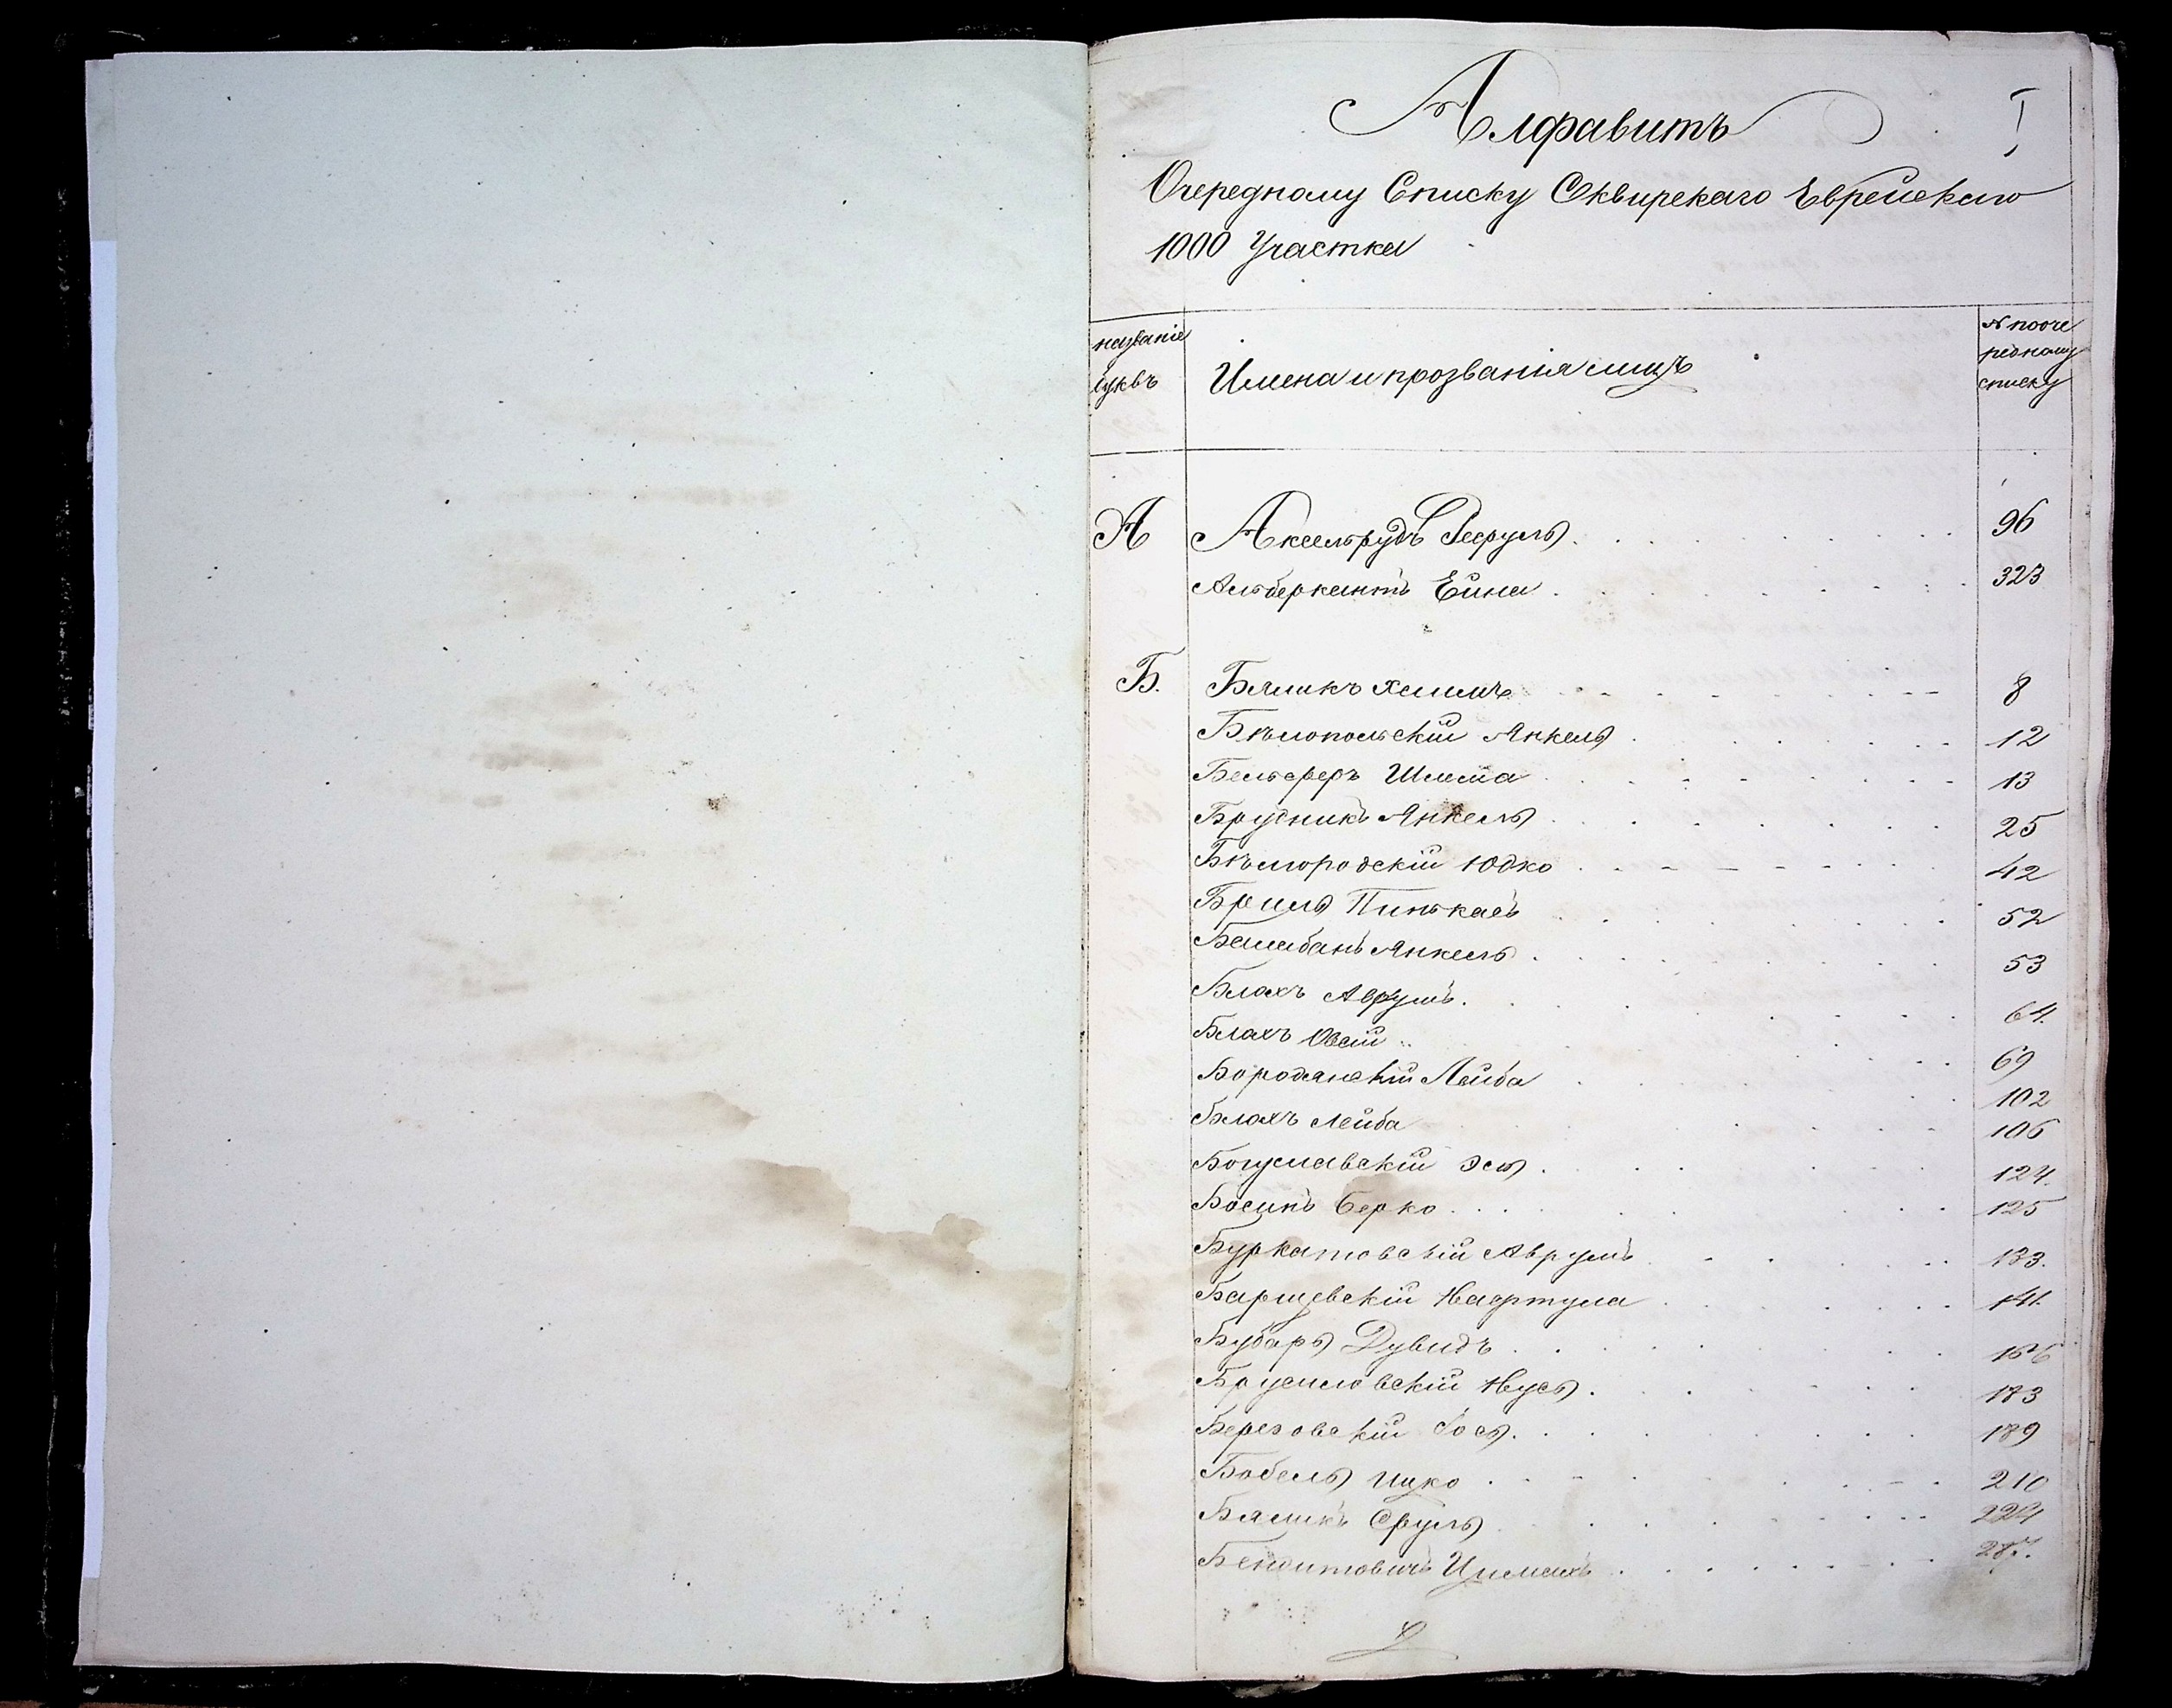 Алфавитъ
I
Очередному Списку Сквирскаго Еврейскаго
1000 Участка
названіе
буквъ
Имена и прозванія лицъ
№ по оче
редному
списку
А Аксельрудъ Сруль 96
Альберкантъ Ейна 323
Б. Бяликъ Хаимъ 8
Бѣлопольскій Янкель 12
Бельферъ Шлема 13
Брусникъ Янкель 25
Бѣлгородскій Юдко 42
Бриль Пинькасъ 52
Балабанъ Янкель 53
Блахъ Аврумъ 64.
Блахъ Овсій 69
Бородянскій Лейба 102
Блахъ Лейба 106
Богуславскій Эсь 124.
Босинъ Берко 125
Буркатовскій Аврумъ 133.
Барщевскій Нафтула 141.
Бубарь Дувидъ 166
Брусиловскій Нусь 173
Березовскій Іось 189
Бобель Ицко 210
Бяликъ Сруль 224
Бендитовичъ Цимахъ